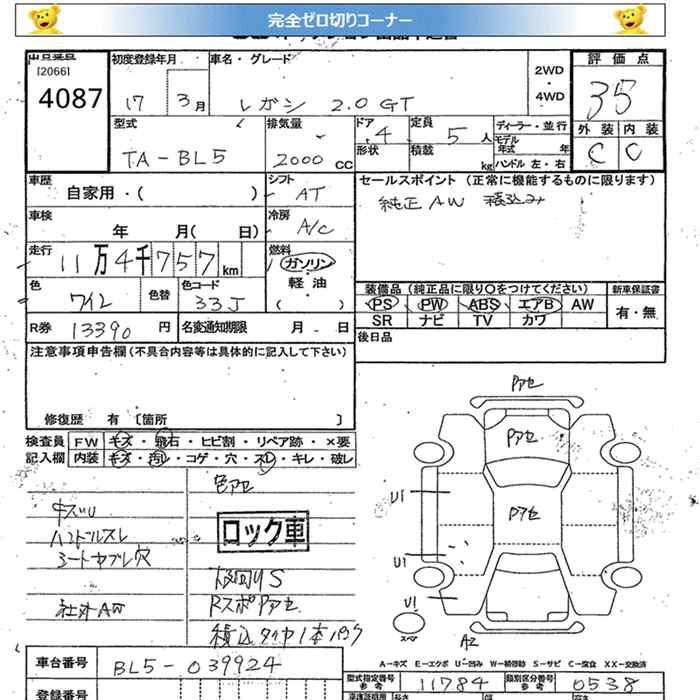 完全ゼロ切りコーナー
出品番号
[2066]
4087
初度登録年月
17 3月
車名・グレード
レガシ 2.0 GT
2WD
・
4WD
評価点
35
型式
TA-BL5
排気量
2000 CC
ドア
4
定員
5人
形状
積載
kg
ディーラー・並行
モデル年式 年
ハンドル 左・右
外装 内装
C C
車歴
自家用・( )
シフト
AT
セールスポイント (正常に機能するものに限ります)
純正 AW 積込み
車検
年 月( 日)
冷房
A/C
走行
11万4千757km
燃料
ガソリン
・
軽油
( )
色
ワイン
色替
色コード
33J
装備品 (純正品に限り○をつけてください)
新車保証書
PS PW ABS エアB AW
SR ナビ TV カワ
有・無
R券 13390 円
名変通知期限 月 - 日
後日品
注意事項申告欄 (不具合内容等は具体的に記入して下さい)
修復歴 有 〔箇所 〕
検査員
記入欄
FW キズ・飛石・ヒビ割・リペア跡・×要
内装 キズ・汚レ・コゲ・穴・スレ・キレ・破レ
色アセ
キズU
ハンドルスレ
シートヤブレ穴
社外AW
ロック車
RスポPアセ
積込タイヤ1本パンク
Pアセ
Pアセ
Pアセ
U1
U1
U1
スペア
A2
A-キズ E-エクボ U-凹み W-補修跡 S-サビ C-腐食 XX-交換済
車台番号
BL5-039924
型式指定番号
参考
11784
類別区分番号
参考
0538
登録番号
自動車証明用
長さ
幅
高さ